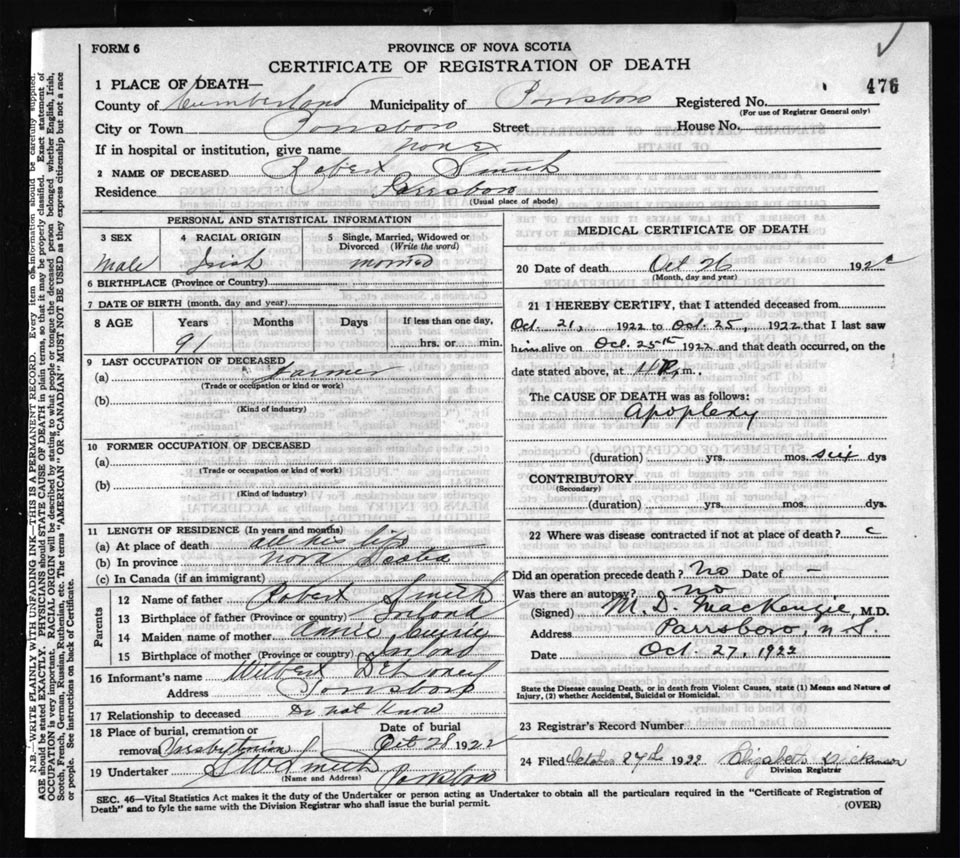 FORM 6
PROVINCE OF NOVA SCOTIA
CERTIFICATE OF REGISTRATION OF DEATH
476
1 PLACE OF DEATH—
County of Cumberland Municipality of Parrsboro Registered No.
(For use of Registrar General only)
City or Town Parrsboro Street House No.
If in hospital or institution, give name none
2 NAME OF DECEASED Robert Smith
Residence Parrsboro
(Usual place of abode)
PERSONAL AND STATISTICAL INFORMATION
3 SEX 4 RACIAL ORIGIN 5 Single, Married, Widowed or Divorced (Write the word)
Male Irish married
6 BIRTHPLACE (Province or Country)
7 DATE OF BIRTH (month, day and year)
8 AGE Years Months Days If less than one day,
91 hrs. or min.
9 LAST OCCUPATION OF DECEASED
(a) Farmer
(Trade or occupation or kind of work)
(b)
(Kind of industry)
10 FORMER OCCUPATION OF DECEASED
(a)
(Trade or occupation or kind of work)
(b)
(Kind of industry)
11 LENGTH OF RESIDENCE (In years and months)
(a) At place of death all his life
(b) In province Nova Scotia
(c) In Canada (if an immigrant)
Parents
12 Name of father Robert Smith
13 Birthplace of father (Province or country) Ireland
14 Maiden name of mother Annie Currie
15 Birthplace of mother (Province or country) Ireland
16 Informant's name Wilbert
Address Parrsboro
17 Relationship to deceased Do not know
18 Place of burial, cremation or removal Date of burial
Oct 28 1922
19 Undertaker S W Smith Parrsboro
(Name and Address)
MEDICAL CERTIFICATE OF DEATH
20 Date of death Oct 26 1922
(Month, day and year)
21 I HEREBY CERTIFY, that I attended deceased from
Oct. 21, 1922 to Oct. 25, 1922 that I last saw
him alive on Oct. 25th 1922 and that death occurred, on the
date stated above, at m.
The CAUSE OF DEATH was as follows:
Apoplexy
(duration) yrs. mos. six dys
CONTRIBUTORY
(Secondary)
(duration) yrs. mos. dys.
22 Where was disease contracted if not at place of death?
Did an operation precede death? No Date of —
Was there an autopsy? No
(Signed) M. D. MacKenzie, M.D.
Address Parrsboro, N.S.
Date Oct. 27, 1922
State the Disease causing Death, or in death from Violent Causes, state (1) Means and Nature of
Injury, (2) whether Accidental, Suicidal or Homicidal.
23 Registrar's Record Number
24 Filed October 27th 1922 Elizabeth
Division Registrar
SEC. 46—Vital Statistics Act makes it the duty of the Undertaker or person acting as Undertaker to obtain all the particulars required in the "Certificate of Registration of
Death" and to fyle the same with the Division Registrar who shall issue the burial permit.
(OVER)
N.B.—WRITE PLAINLY WITH UNFADING INK—THIS IS A PERMANENT RECORD. Every item of information should be carefully supplied.
AGE should be stated EXACTLY. PHYSICIANS should STATE CAUSE OF DEATH in plain terms, so that it may be properly classified. Exact statement of
OCCUPATION is very important. RACIAL ORIGIN will be described by stating to what people or tongue the deceased person belonged, whether English, Irish,
Scotch, French, German, Russian, Ruthenian, etc. The terms "AMERICAN" OR "CANADIAN" MUST NOT BE USED as they express citizenship but not a race
or people. See instructions on back of Certificate.